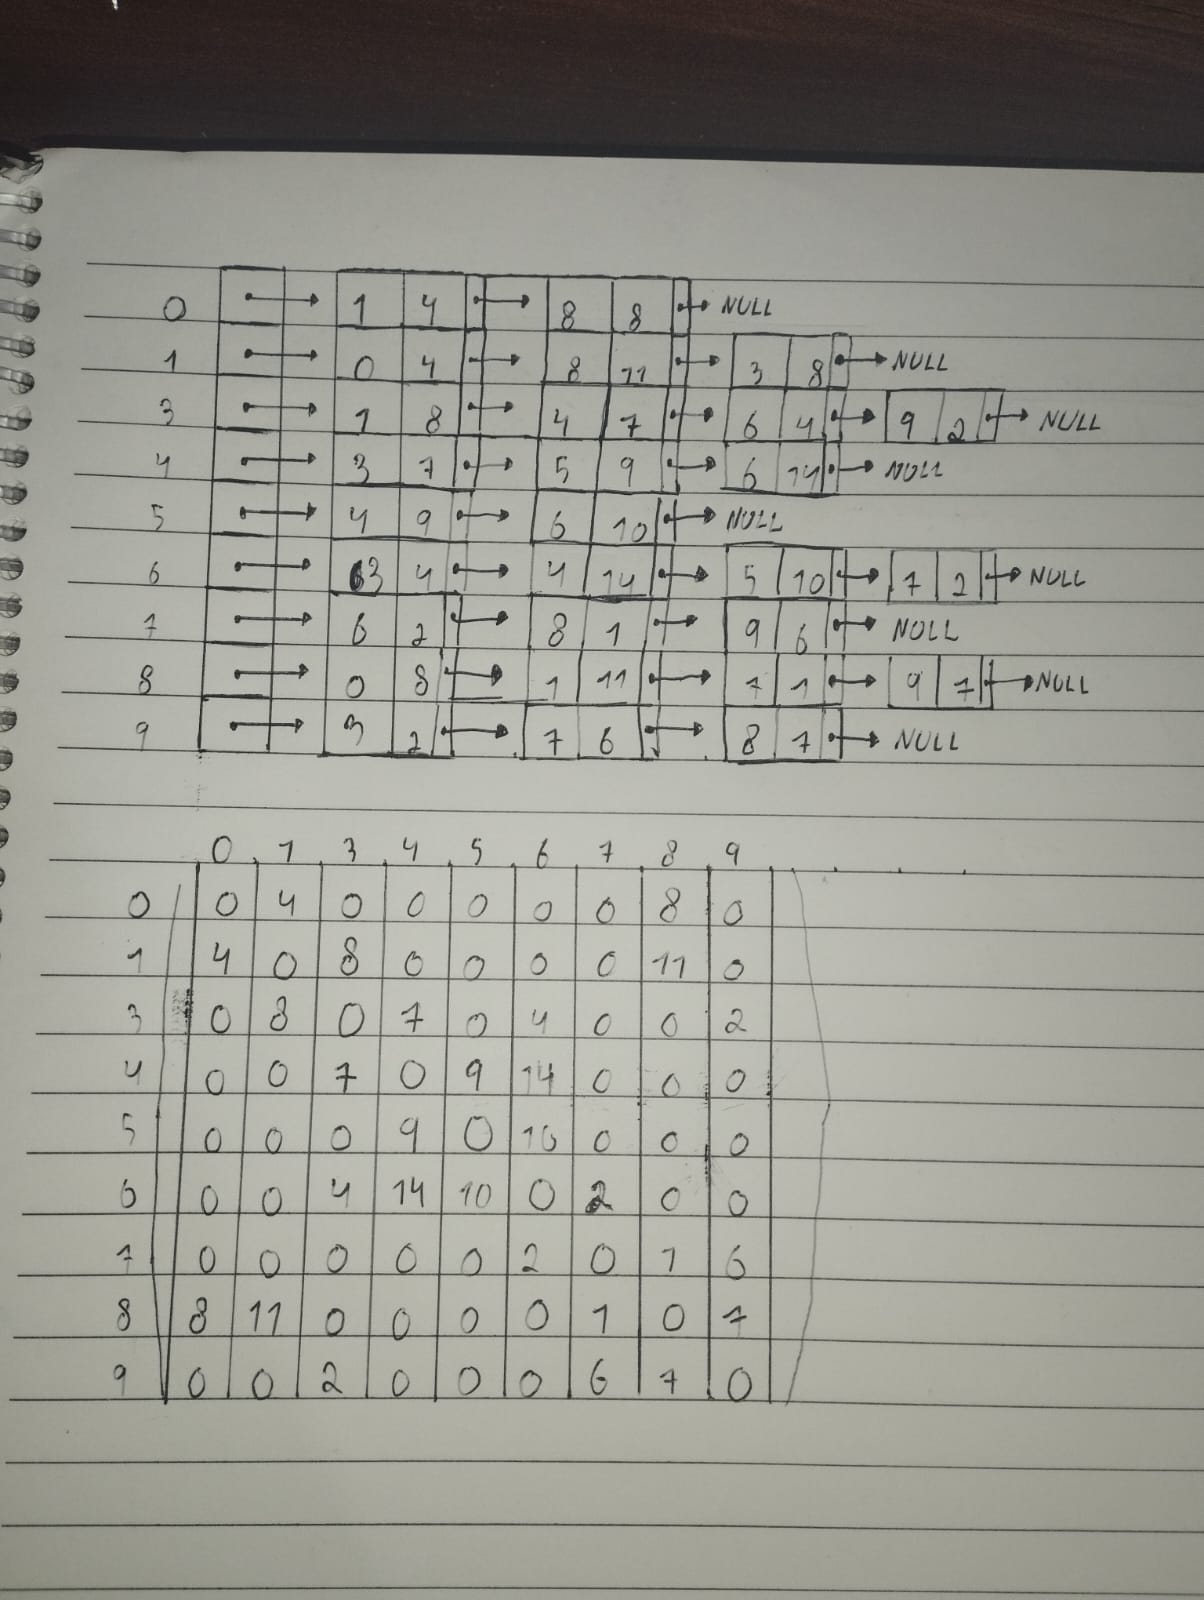 0 1 4 8 8 NULL
1 0 4 8 11 3 8 NULL
3 1 8 4 7 6 4 9 2 NULL
4 3 7 5 9 6 14 NULL
5 4 9 6 10 NULL
6 3 4 4 14 5 10 7 2 NULL
7 6 2 8 1 9 6 NULL
8 0 8 1 11 7 1 9 7 NULL
9 3 2 7 6 8 7 NULL
0 1 3 4 5 6 7 8 9
0 0 4 0 0 0 0 0 8 0
1 4 0 8 0 0 0 0 11 0
3 0 8 0 7 0 4 0 0 2
4 0 0 7 0 9 14 0 0 0
5 0 0 0 9 0 10 0 0 0
6 0 0 4 14 10 0 2 0 0
7 0 0 0 0 0 2 0 1 6
8 8 11 0 0 0 0 1 0 7
9 0 0 2 0 0 0 6 7 0